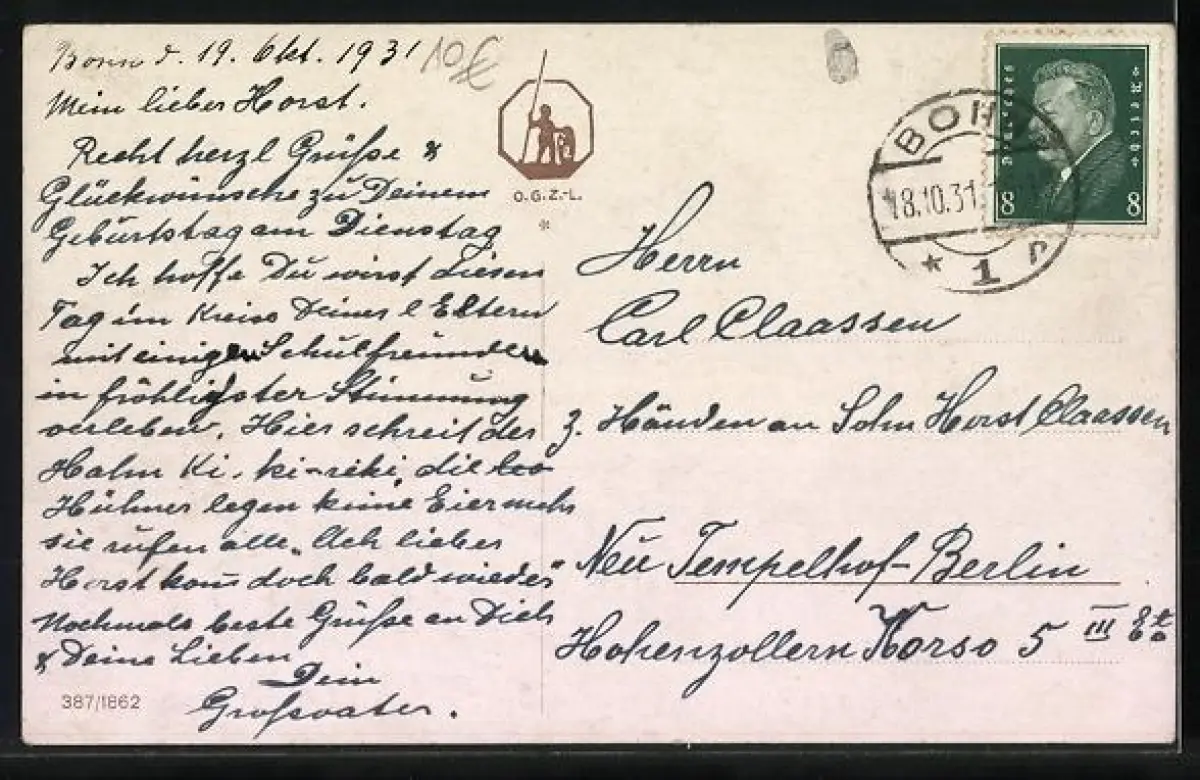 Bonn d. 19. Okt. 1931
10€
Mein lieber Horst.
Recht herzl Grüße &
Glückwünsche zu Deinem
Geburtstag am Dienstag
Ich hoffe Du wirst diesen
Tag im Kreise Deiner l Eltern
mit einigen Schulfreunden
in fröhlichster Stimmung
verleben. Hier schreit der
Hahn Ki-ki-riki, die
Hühner legen keine Eier mehr
sie rufen alle „Ach lieber
Horst kom̄ doch bald wieder"
Nochmals beste Grüße an Dich
& Deine Lieben
Dein
Großvater.
387/1862
O.G.Z.-L.
Herrn
Carl Claassen
z. Händen an Sohn Horst Claassen
Neu Tempelhof-Berlin
Hohenzollern Korso 5 III
BONN
18.10.31
* 1
Deutsches Reich
8 8